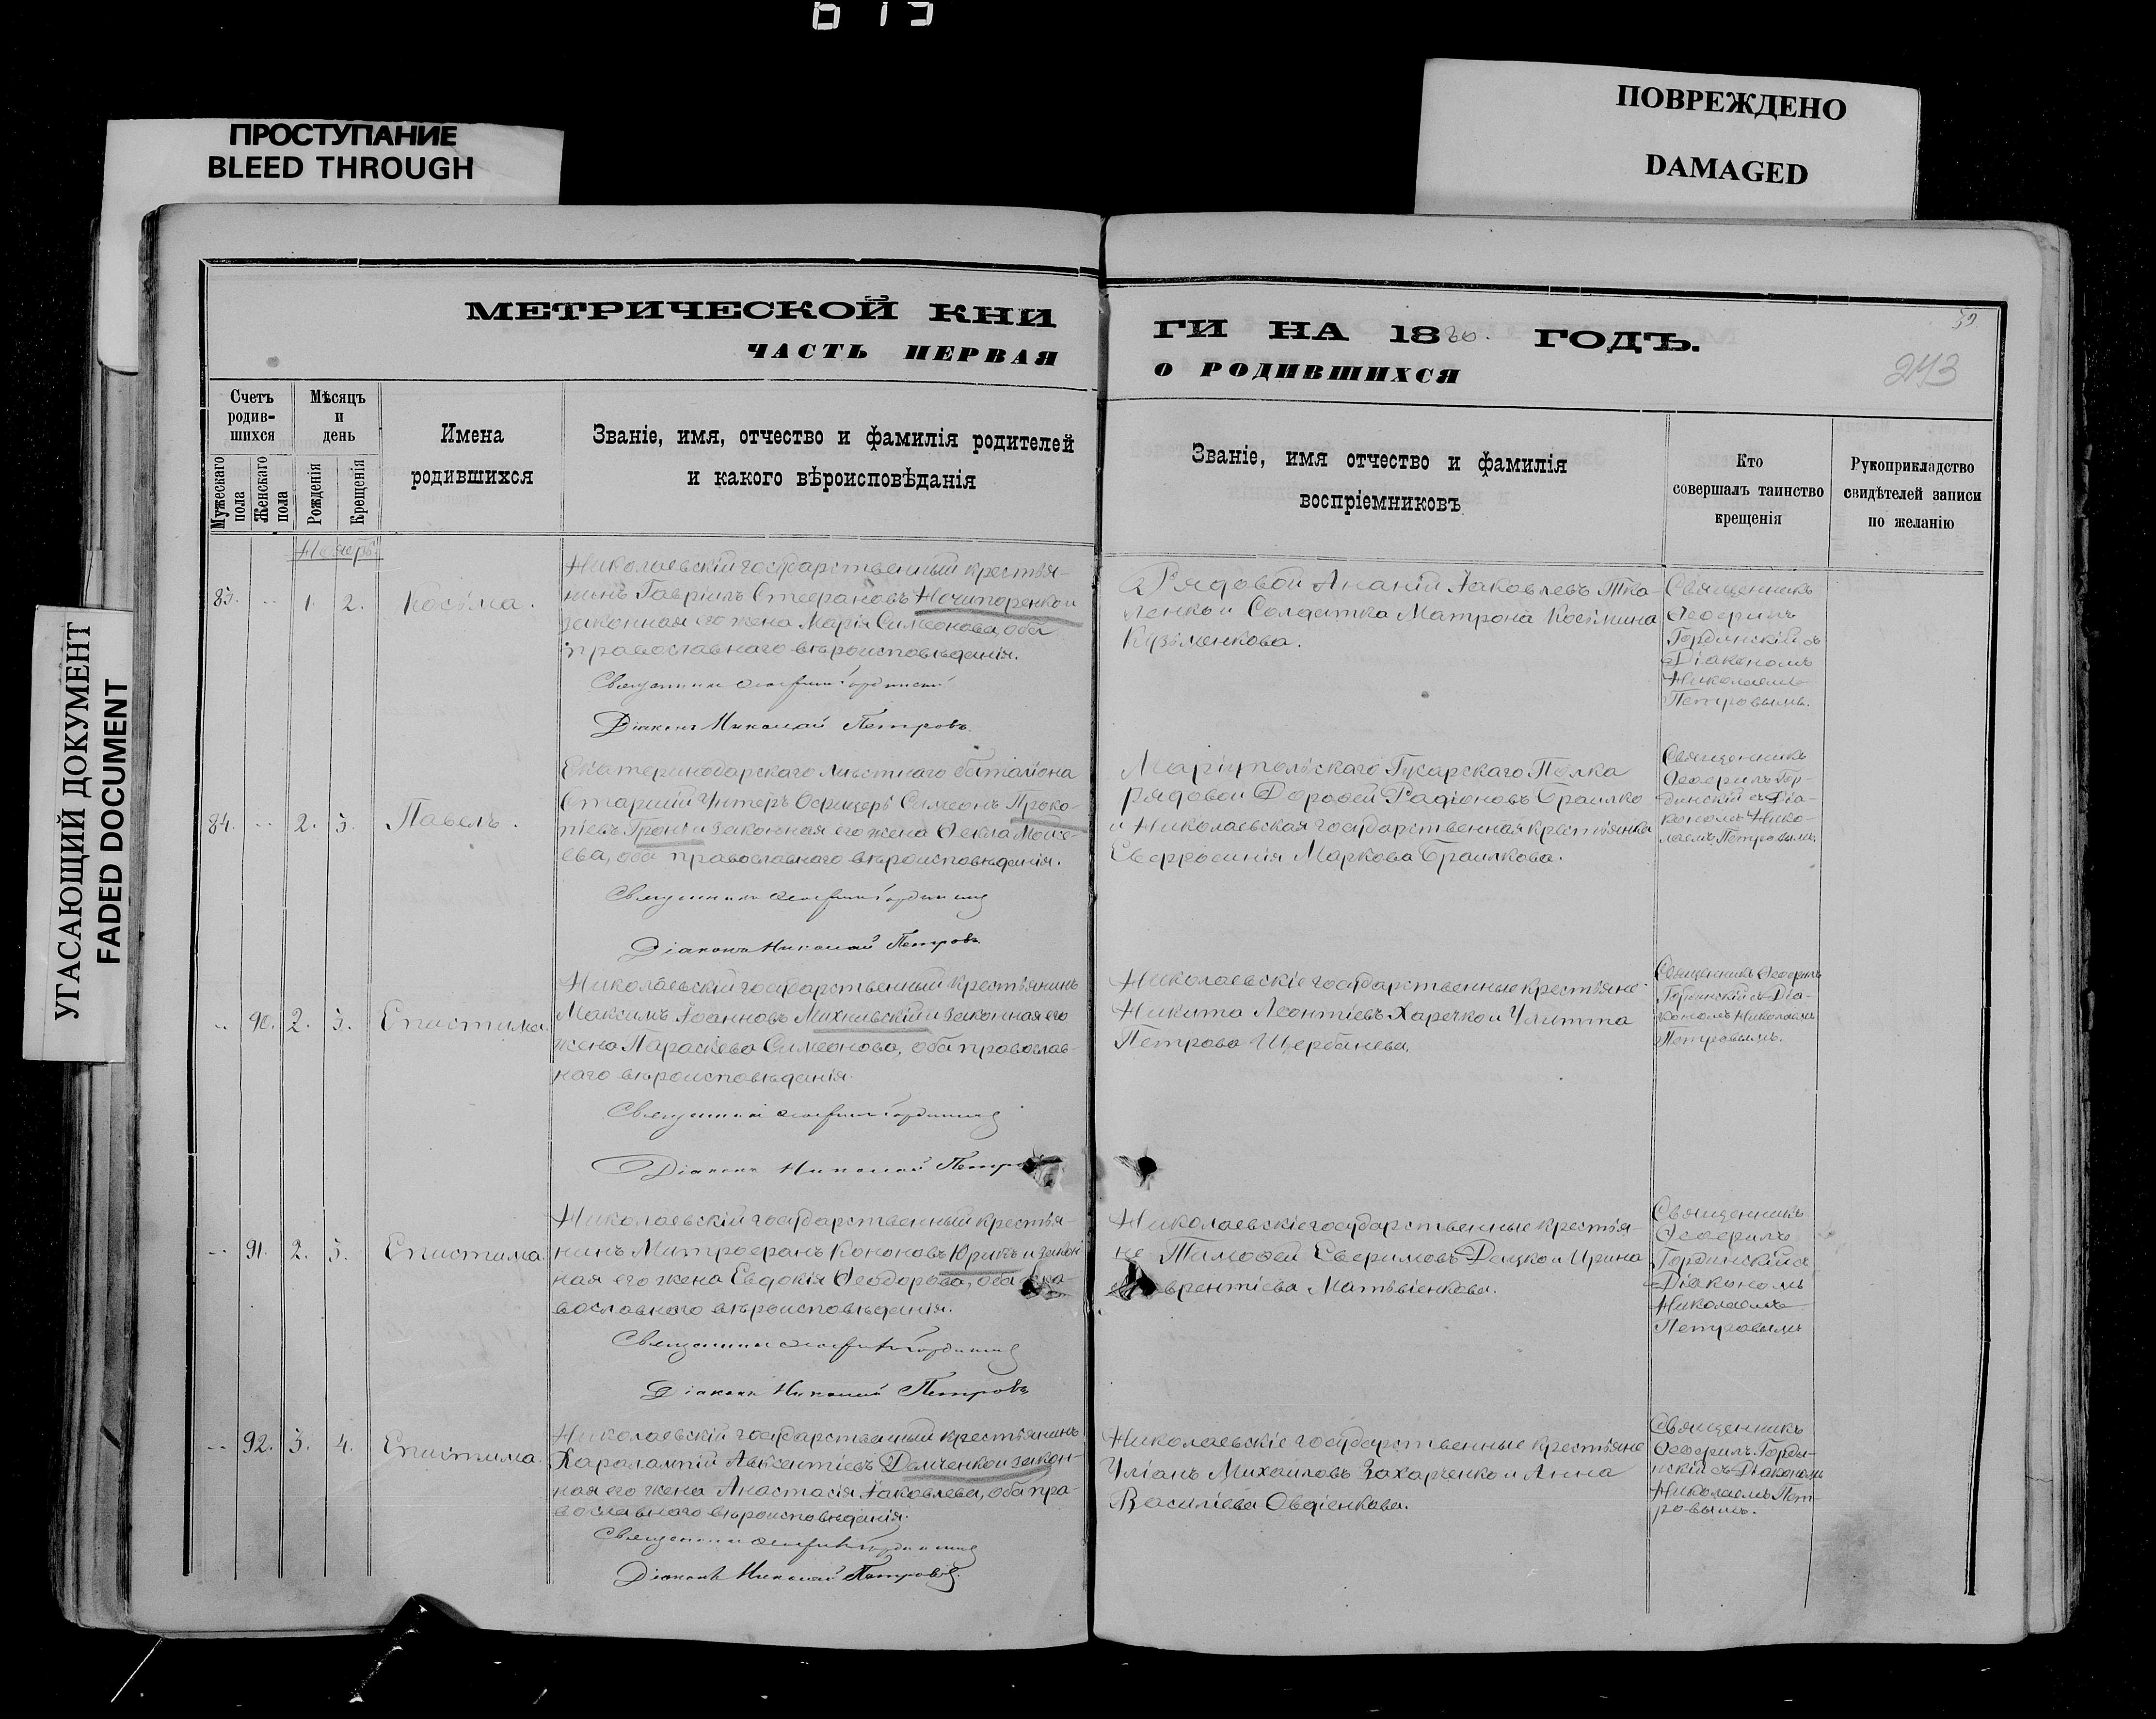 ПРОСТУПАНИЕ
BLEED THROUGH
ПОВРЕЖДЕНО
DAMAGED
УГАСАЮЩИЙ ДОКУМЕНТ
FADED DOCUMENT
МЕТРИЧЕСКОЙ КНИ
ЧАСТЬ ПЕРВАЯ
ГИ НА 1880. ГОДЪ.
О РОДИВШИХСЯ
243
Счетъ
родив-
шихся
Мужескаго
пола
Женскаго
пола
Мѣсяцъ
и
день
Рожденія
Крещенія
Имена
родившихся
Званіе, имя, отчество и фамилія родителей
и какого вѣроисповѣданія
Званіе, имя отчество и фамилія
воспріемниковъ
Кто
совершалъ таинство
крещенія
Рукоприкладство
свидѣтелей записи
по желанію
83. 1. 2. Косьма.
Николаевскій государственный крестья-
нинъ Гавріилъ Стефановъ Ночипоренко и
законная его жена Марія Симеонова, оба
православнаго вѣроисповѣданія.
Священникъ Ѳеофилъ Гординскій
Діаконъ Николай Петровъ.
Рядовой Ананій Іаковлевъ Тка-
ленко и Солдатка Матрона Косьмина
Кузьменкова.
Священникъ
Ѳеофилъ
Гординскій съ
Діакономъ
Николаемъ
Петровымъ.
84. 2. 3. Павелъ.
Екатеринодарскаго мѣстнаго баталіона
Старшій Унтеръ Офицеръ Симеонъ Проко-
піевъ Гронь и законная его жена Ѳекла Мойсе-
ева, оба православнаго вѣроисповѣданія.
Священникъ Ѳеофилъ Гординскій
Діаконъ Николай Петровъ
Маріупольскаго Гусарскаго Полка
рядовой Дороѳей Радіоновъ Браилко
и Николаевская государственная крестьянка
Евфросинія Маркова Браилкова.
Священникъ
Ѳеофилъ Гор-
динскій съ Діа-
кономъ Нико-
лаемъ Петровымъ.
90. 2. 3. Епистима.
Николаевскій государственный крестьянинъ
Максимъ Іоанновъ Михневскій и законная его
жена Параскева Симеонова, оба православ-
наго вѣроисповѣданія.
Священникъ Ѳеофилъ Гординскій
Діаконъ Николай Петро
Николаевскіе государственные крестьяне
Никита Леонтіевъ Харечко и Улитта
Петрова Щербанева.
Священникъ Ѳеофилъ
Гординскій съ Діа-
кономъ Николаемъ
Петровымъ.
91. 2. 3. Епистима.
Николаевскій государственный крестья-
нинъ Митрофанъ Кононовъ Юринъ и закон
ная его жена Евдокія Ѳеодорова, оба пра-
вославнаго вѣроисповѣданія.
Священникъ Ѳеофилъ Гординскій
Діаконъ Николай Петровъ
Николаевскіе государственные крестья-
не Тимоѳей Ефимовъ Дацко и Ирина
врентіева Матвіенкова.
Священникъ
Ѳеофилъ
Гординскій съ
Діакономъ
Николаемъ
Петровымъ
92. 3. 4. Епистима.
Николаевскій государственный крестьянинъ
Харалампій Авксентіевъ Демченко и закон-
ная его жена Анастасія Іаковлева, оба пра-
вославнаго вѣроисповѣданія.
Священникъ Ѳеофилъ Гординскій
Діаконъ Николай Петровъ.
Николаевскіе государственные крестьяне
Уліанъ Михаиловъ Захарченко и Анна
Василіева Овдіенкова.
Священникъ
Ѳеофилъ Горди-
нскій съ Діакономъ
Николаемъ Пет-
ровымъ.